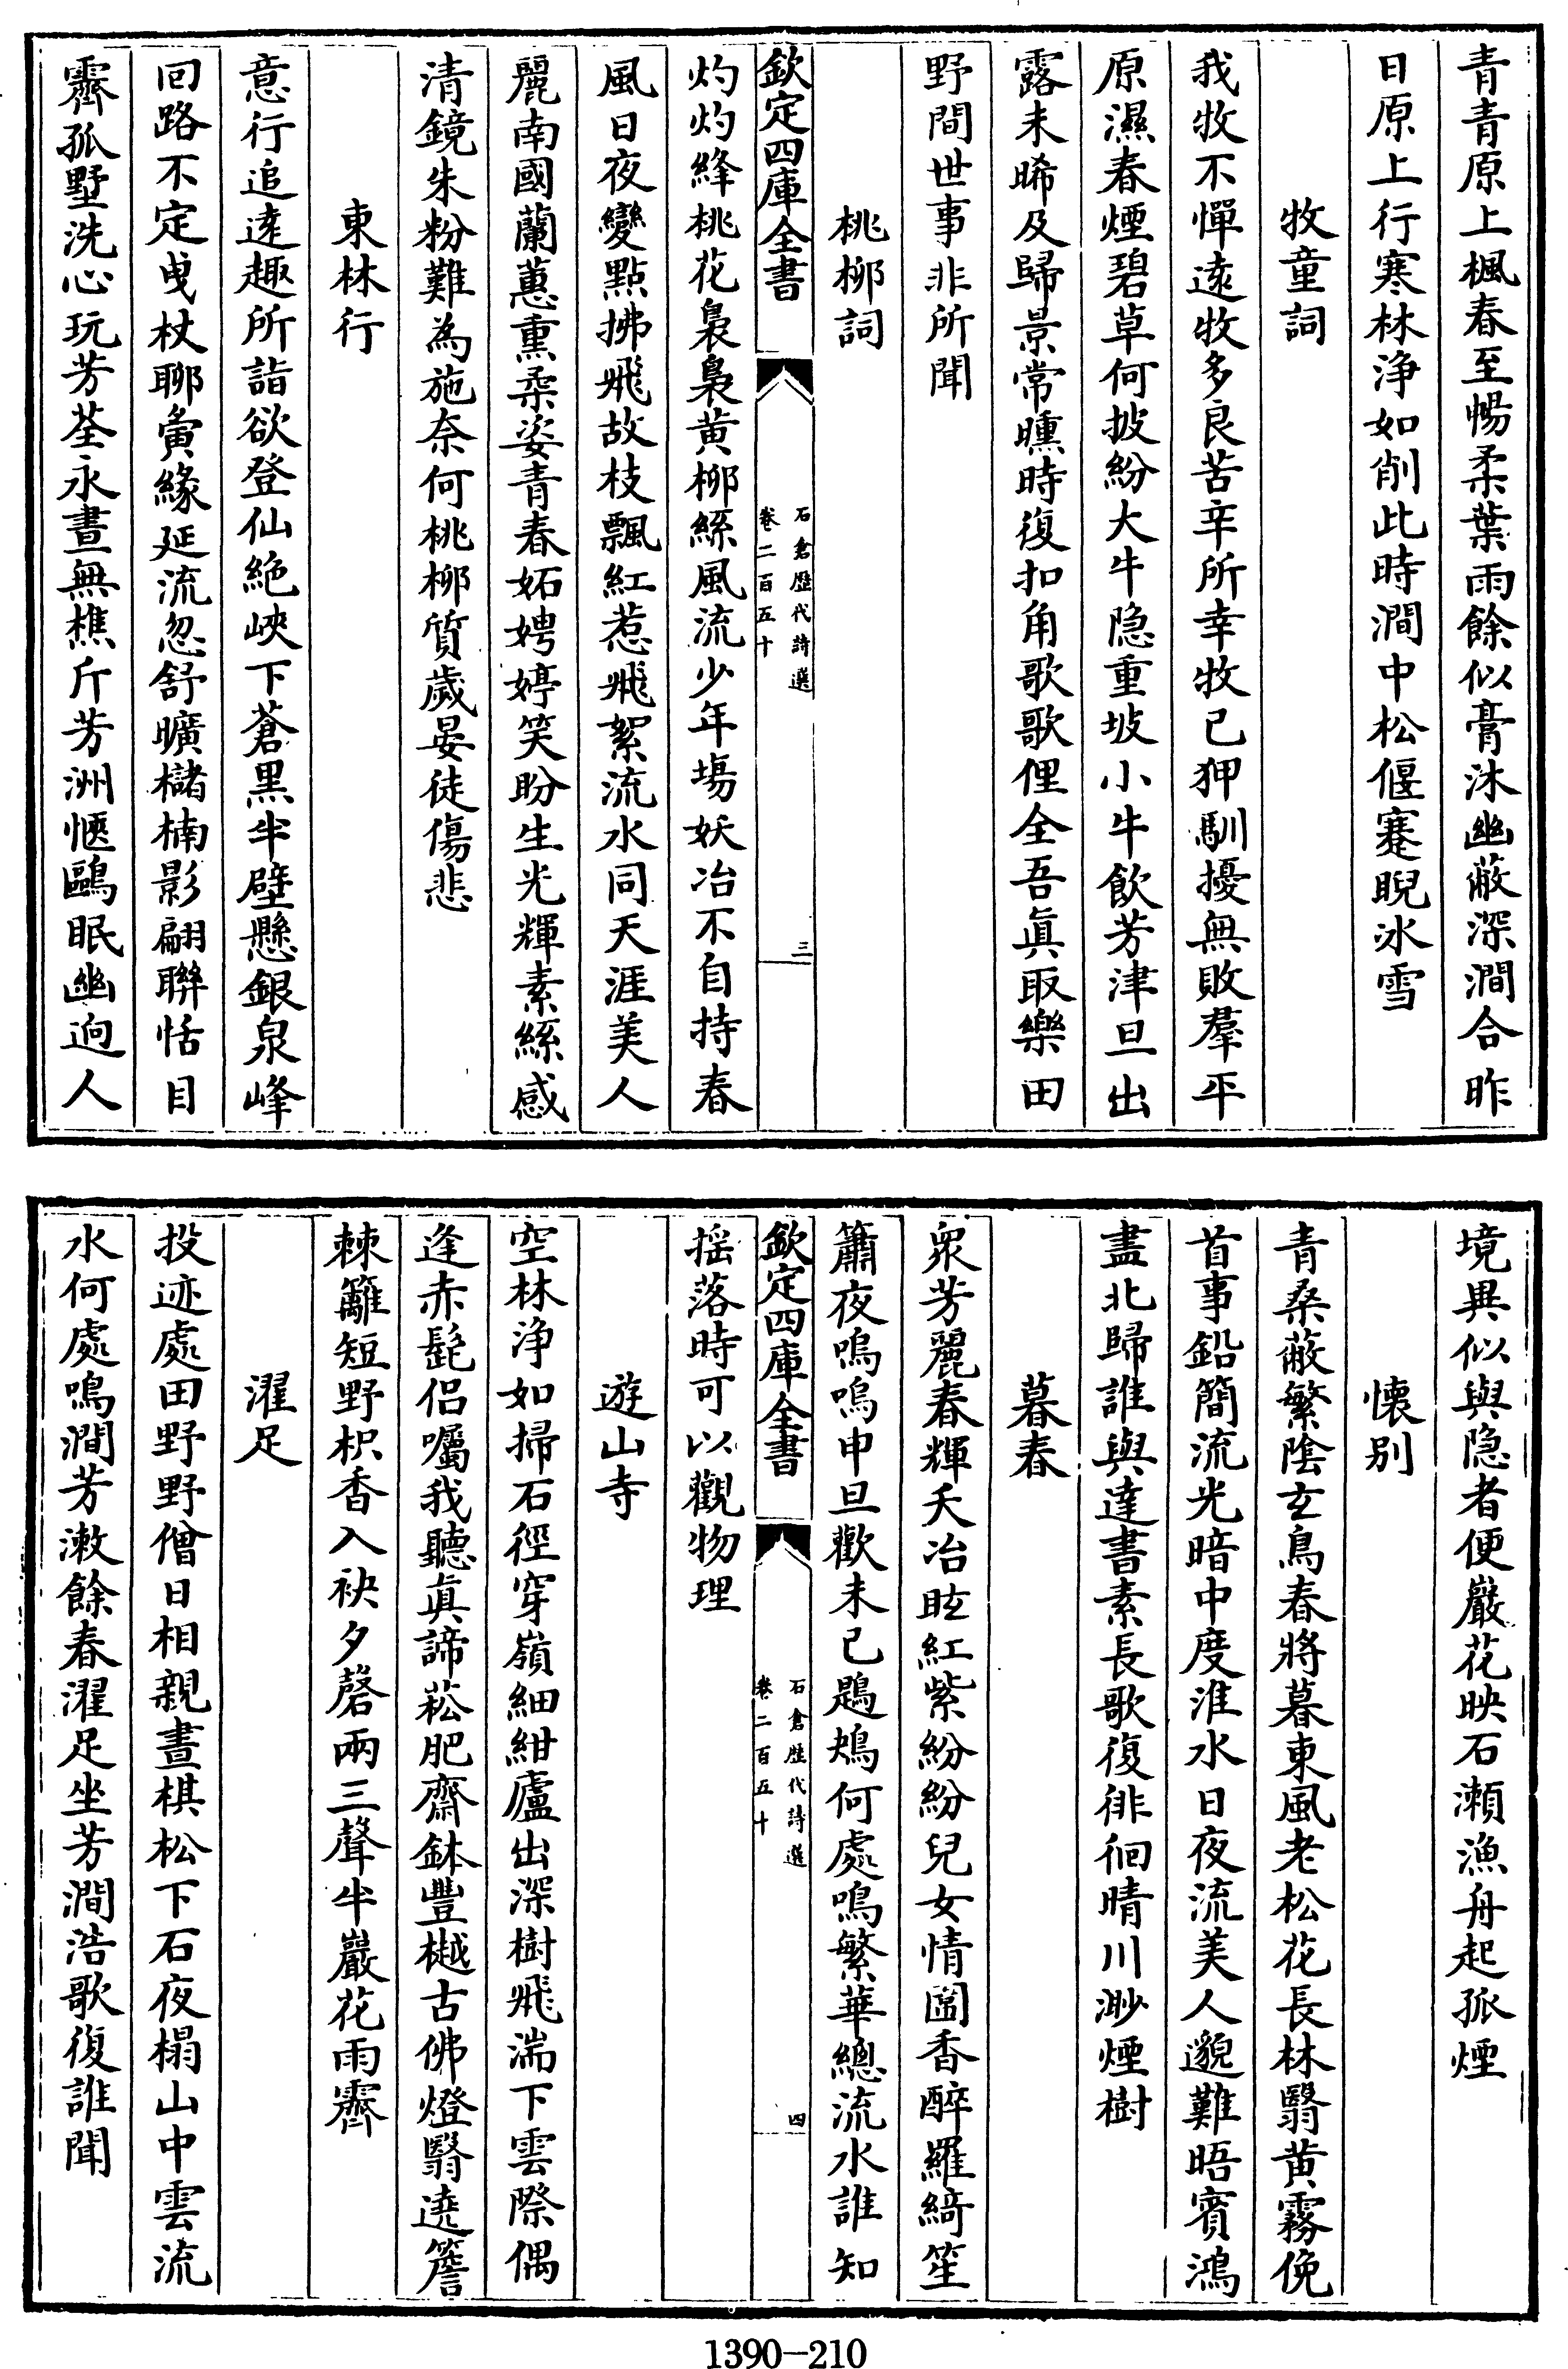 青青原上楓春至暢柔葉雨餘似膏沐幽蔽深澗合昨
日原上行寒林浄如削此時澗中松偃蹇睨冰雪
牧童詞
我牧不憚遠牧多良苦辛所幸牧已狎馴擾無敗羣平
原濕春煙碧草何披紛大牛隠重坡小牛飲芳津旦出
露未晞及歸景常曛時復扣角歌歌俚全吾眞取樂田
野間世事非所聞
桃柳詞
欽定四庫全書
石倉歴代詩選
卷二百五十
三
灼灼絳桃花裊裊黄柳絲風流少年塲妖冶不自持春
風日夜變點拂飛故枝飄紅惹飛絮流水同天涯美人
麗南國蘭蕙熏柔姿青春妬娉婷笑盼生光輝素絲感
清鏡朱粉難為施奈何桃柳質歲晏徒傷悲
東林行
意行追遠趣所詣欲登仙絶峽下蒼黒半壁懸銀泉峰
回路不定曵杖聊夤緣延流忽舒曠櫧楠影翩聨恬目
霽孤墅洗心玩芳荃永晝無樵斤芳洲愜鷗眠幽逈人
境異似與隠者便巖花映石瀬漁舟起孤煙
懐别
青桑蔽繁陰玄鳥春將暮東風老松花長林翳黄霧俛
首事鉛簡流光暗中度淮水日夜流美人邈難晤賓鴻
盡北歸誰與達書素長歌復徘徊晴川渺煙樹
暮春
衆芳麗春輝夭冶眩紅紫紛紛兒女情園香醉羅綺笙
簫夜嗚嗚申旦歡未已鶗鴂何處鳴繁華總流水誰知
欽定四庫全書
石倉歴代詩選
卷二百五十
四
揺落時可以觀物理
遊山寺
空林浄如掃石徑穿嶺細紺廬出深樹飛湍下雲際偶
逢赤髭侣囑我聽眞諦菘肥齋鉢豐樾古佛燈翳遶簷
棘籬短野枳香入袂夕磬兩三聲半巖花雨霽
濯足
投迹處田野野僧日相親晝棋松下石夜榻山中雲流
水何處鳴澗芳漱餘春濯足坐芳澗浩歌復誰聞
1390-210